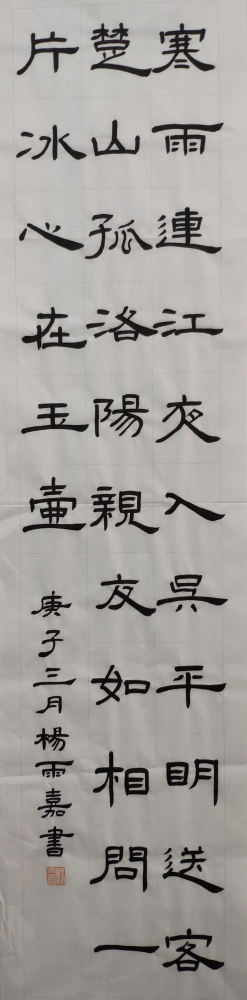 寒雨連江夜入吳平明送客
楚山孤洛陽親友如相問一
片冰心在玉壺
庚子三月楊雨嘉書